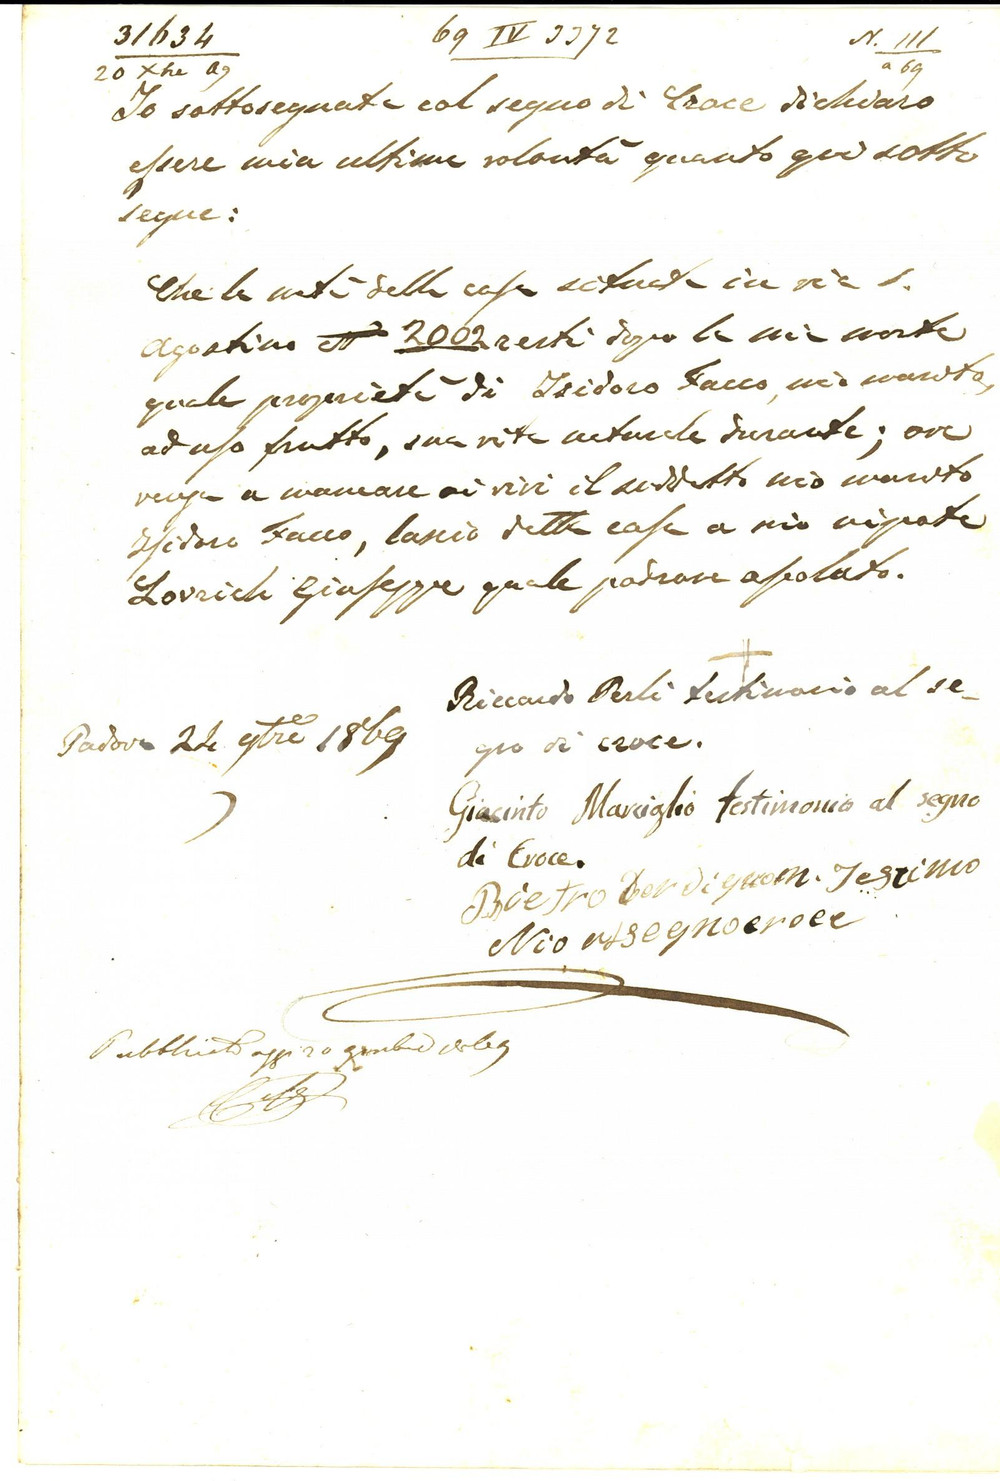 31634 69 IV 3372 N. 111
20 Xbre 69 a 69
Io sottosegnata col segno di Croce dichiaro
essere mia ultima volontà quanto qui sotto
segue:
Che la metà della casa situata in via S.
Agostino N° 2002 resti dopo la mia morte
quale proprietà di Isidoro Facco, mio marito,
ad uso frutto, sua vita naturale durante; ove
venga a mancare ai vivi il suddetto mio marito
Isidoro Facco, lascio detta casa a mio nipote
Lovrich Giuseppe quale padrone assoluto.
Riccardo Perli testimonio al se-
Padova 24 9bre 1869 gno di croce.
Giacinto Marciglio testimonio al segno
di Croce.
Pietro
Nio segno croce
Pubblicato oggi 20